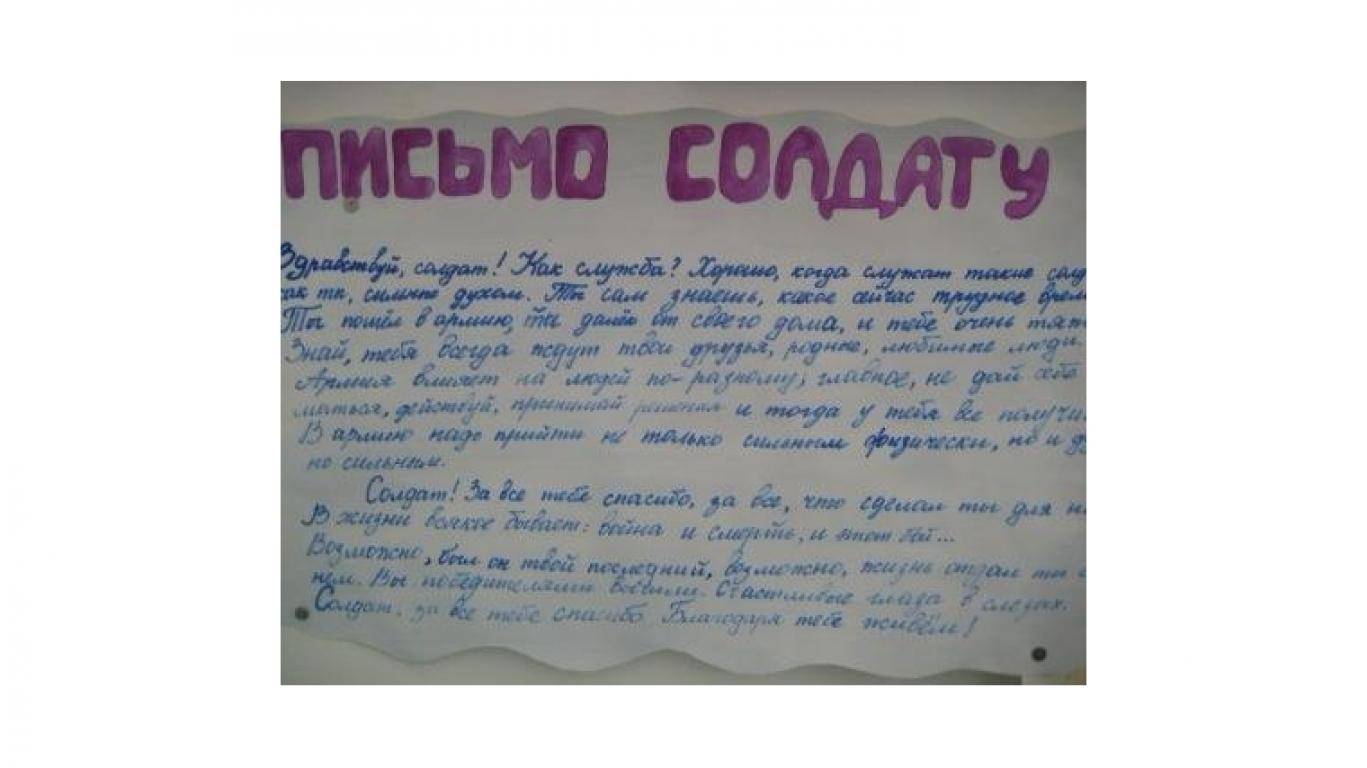 ПИСЬМО СОЛДАТУ
Здравствуй, солдат! Как служба? Хорошо, когда служат такие солд
как ты, сильные духом. Ты сам знаешь, какое сейчас трудное врем
Ты пошёл в армию, ты далёк от своего дома, и тебе очень тяж
Знай, тебя всегда ждут твои друзья, родные, любимые люди.
Армия влияет на людей по-разному; главное, не дай себе
маться, действуй, принимай решения и тогда у тебя все получи
В армию надо прийти не только сильным физически, но и ду
но сильным.
Солдат! За все тебе спасибо, за все, что сделал ты для н
В жизни всякое бывает: война и смерть, и этот бой...
Возможно, был он твой последний, возможно, жизнь отдал ты
нем. Вы победителями Счастливые глаза в слезах.
Солдат, за все тебе спасибо. Благодаря тебе живём!